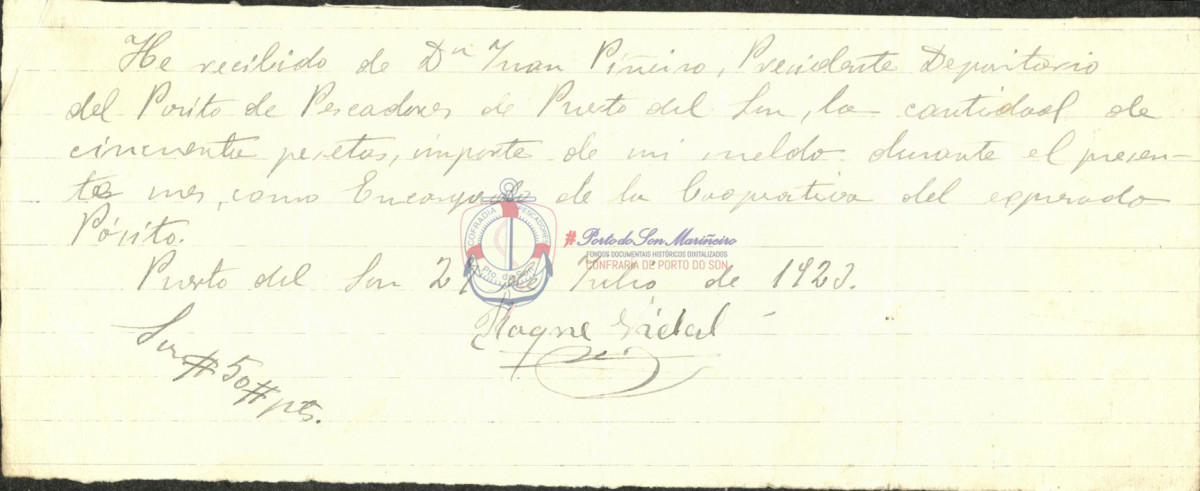 He recibido de Dn Juan Piñeiro, Presidente Depositario
del Pósito de Pescadores de Puerto del Son, la cantidad de
cincuenta pesetas, importe de mi sueldo durante el presen-
te mes, como Encargado de la Cooperativa del expresado
Pósito.
COFRADIA PESCADORES
Pto. do Son
#Porto do Son Mariñeiro
FONDOS DOCUMENTAIS HISTÓRICOS DIXITALIZADOS
CONFRARIA DE PORTO DO SON
Puerto del Son de Julio de 1923.
Roque Vidal
Son #50# pts.